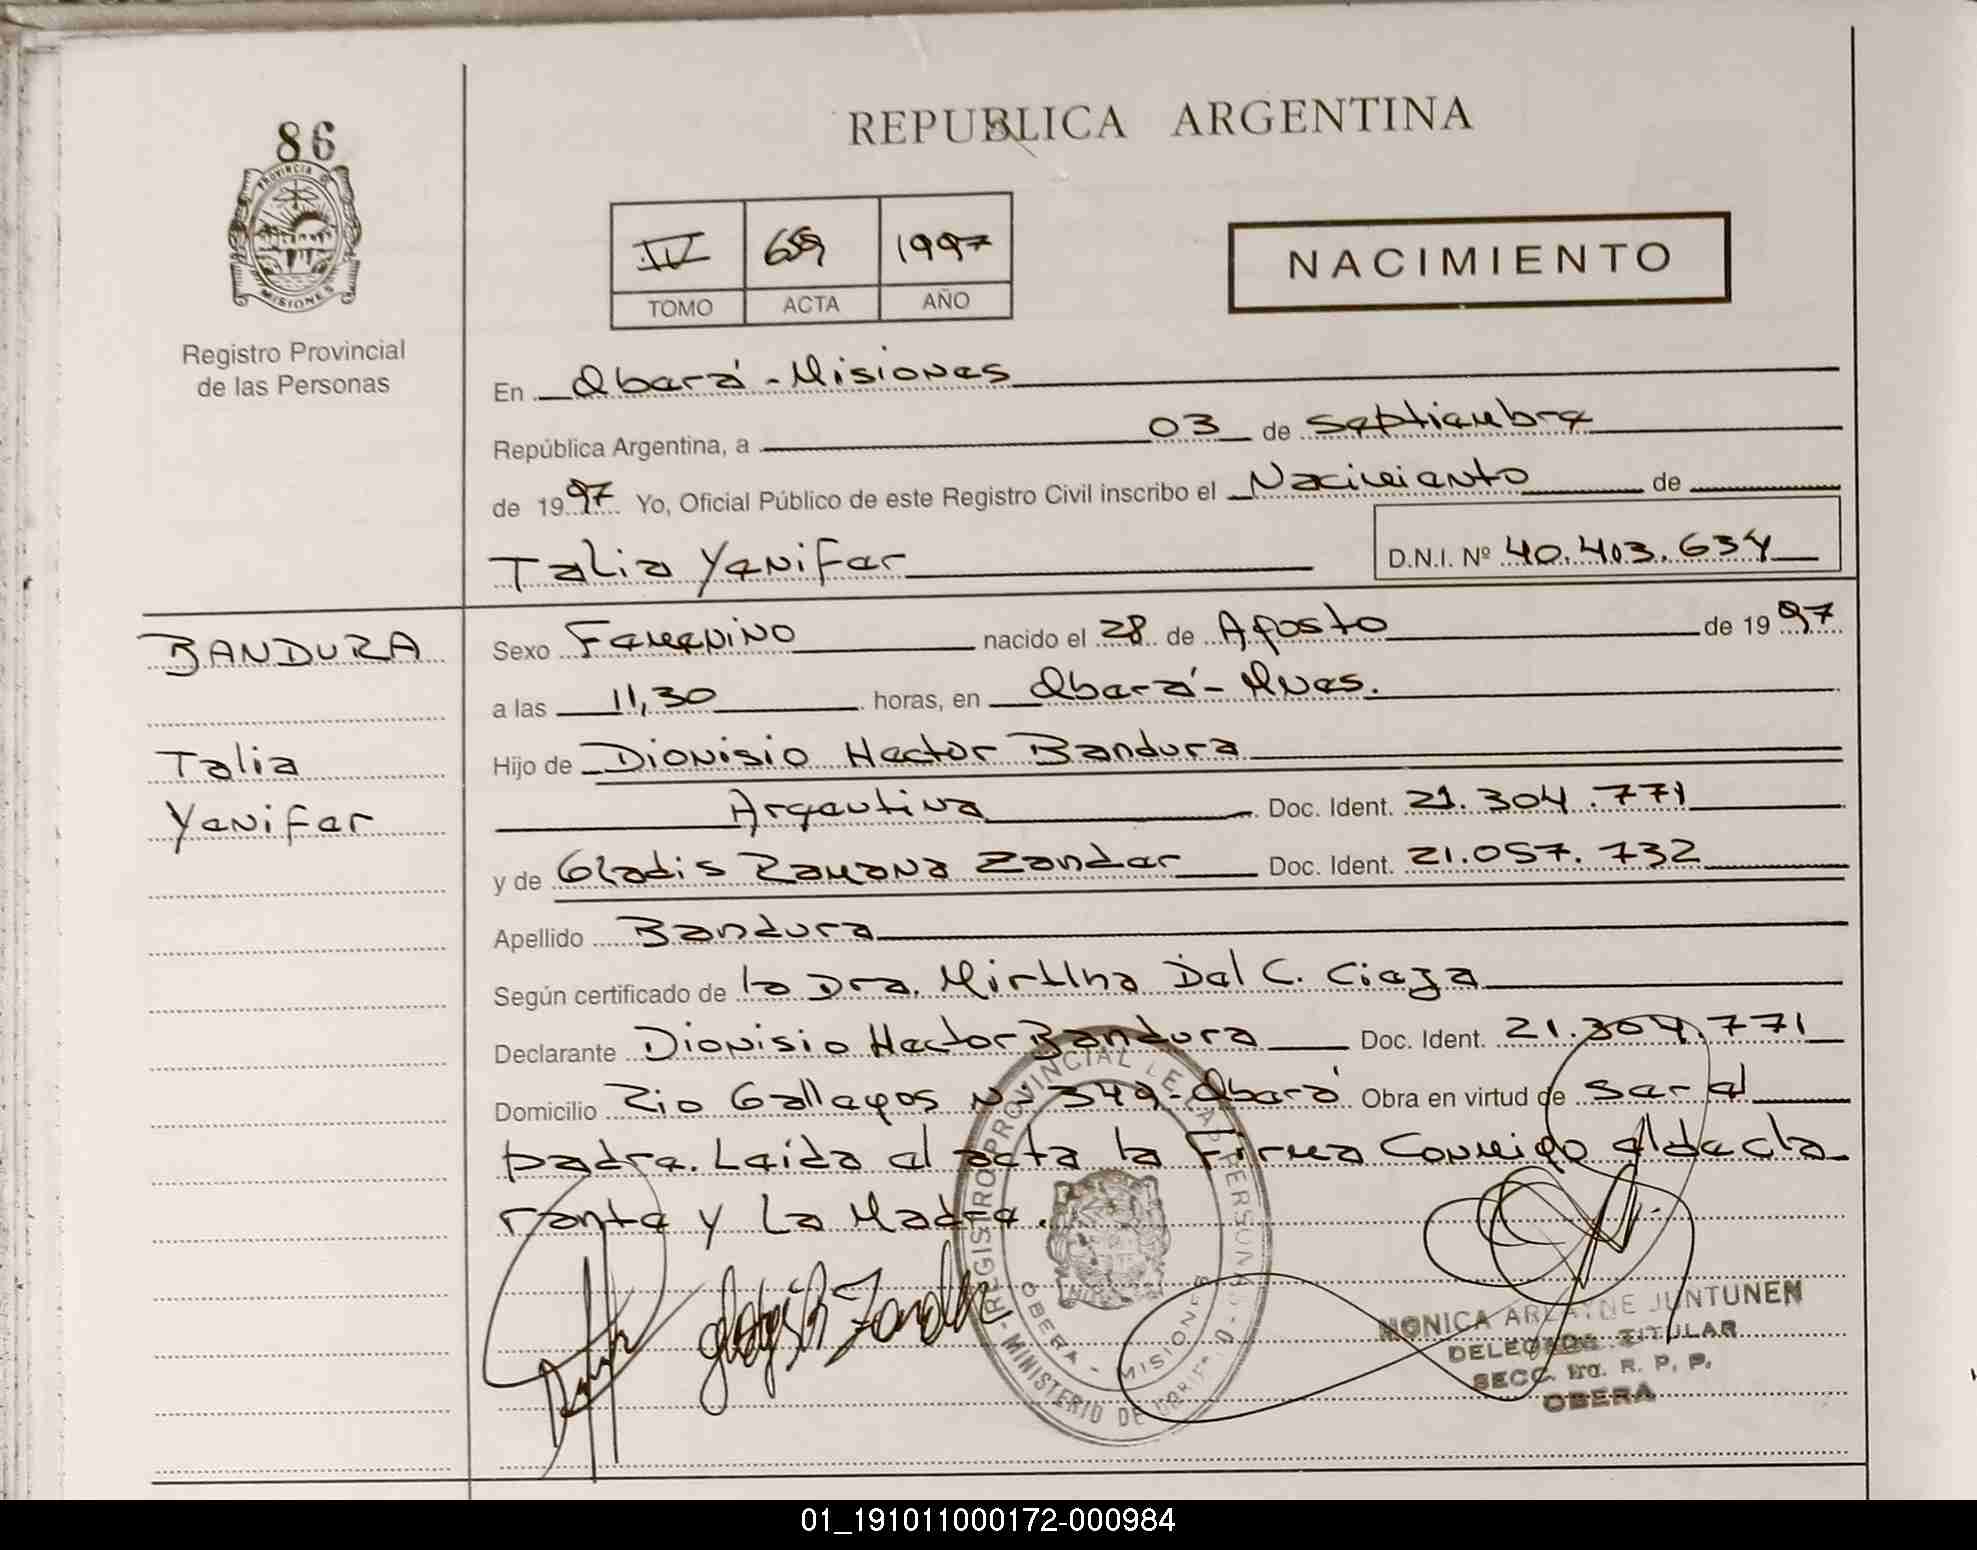 86
REPUBLICA ARGENTINA
PROVINCIA D
MISIONES
Registro Provincial
de las Personas
IV 659 1997
TOMO ACTA AÑO
NACIMIENTO
En Oberá - Misiones
República Argentina, a 03 de Septiembre
de 1997 Yo, Oficial Público de este Registro Civil inscribo el Nacimiento de
Talia Yenifer D.N.I. Nº 40.403.634
BANDURA
Talia
Yenifer
Sexo Femenino nacido el 28 de Agosto de 1997
a las 11,30 horas, en Oberá - Mnes.
Hijo de Dionisio Hector Bandura
Argentina Doc. Ident. 21.304.771
y de Gladis Ramona Zander Doc. Ident. 21.057.732
Apellido Bandura
Según certificado de la Dra. Mirtha Del C.
Declarante Dionisio Hector Bandura Doc. Ident. 21.304.771
Domicilio Rio Gallegos Nº 349 - Oberá Obra en virtud de ser el
padre. Leida el acta la Firma Conmigo el decla
rante y La Madre.
REGISTRO PROVINCIAL DE LAS PERSONAS - MINISTERIO DE
OBERA - MISIONES
MONICA ARLAYNE JUNTUNEN
DELEGADA TITULAR
SECC. 1ra. R. P. P.
OBERA
01_191011000172-000984